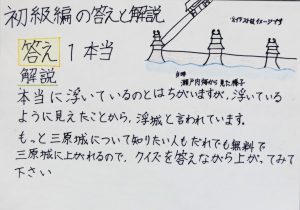 初級編の答えと解説
※イラストはイメージです
答え 1 本当
当時
瀬戸内海から見た様子
解説
本当に浮いているのとはちがいますが、浮いている
ように見えたことから、浮城と言われています。
もっと三原城について知りたい人もだれでも無料で
三原城に上がれるので、クイズを答えながら上がってみて
下さい